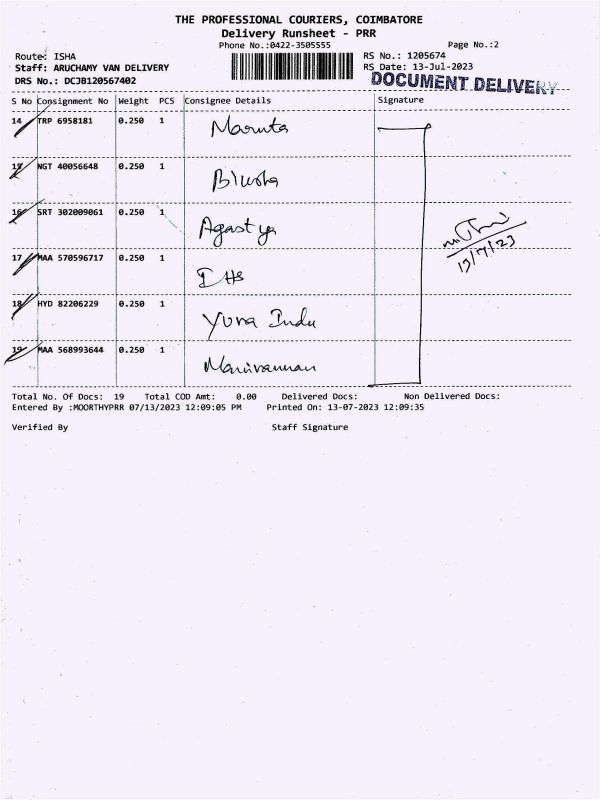 THE PROFESSIONAL COURIERS, COIMBATORE
Delivery Runsheet - PRR
Phone No.:0422-3505555 Page No.:2
Route: ISHA RS No.: 1205674
Staff: ARUCHAMY VAN DELIVERY RS Date: 13-Jul-2023
DRS No.: DCJB120567402 DOCUMENT DELIVERY
S No Consignment No Weight PCS Consignee Details Signature
14 TRP 6958181 0.250 1
15 NGT 40056648 0.250 1
16 SRT 302009061 0.250 1 Agastya
17 MAA 570596717 0.250 1 IHS
18 HYD 82206229 0.250 1 Yuva Indu
19 MAA 568993644 0.250 1 Manivannan
13/7/23
Total No. Of Docs: 19 Total COD Amt: 0.00 Delivered Docs: Non Delivered Docs:
Entered By :MOORTHYPRR 07/13/2023 12:09:05 PM Printed On: 13-07-2023 12:09:35
Verified By Staff Signature